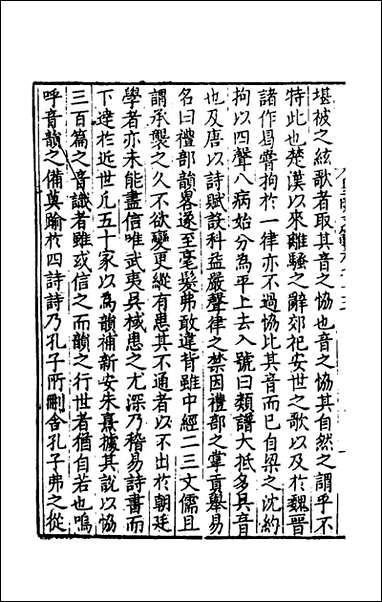 堪被之絃歌者取其音之協也音之協其自然之謂乎不
特此也楚漢以來離騷之辭郊祀安世之歌以及於魏晉
諸作曷嘗拘於一律亦不過協比其音而已自梁之沈約
拘以四聲八病始分為平上去入號曰類譜大抵多呉音
也及唐以詩賦設科益嚴聲律之禁因禮部之掌貢舉易
名曰禮部韻畧遂至毫髮弗敢違背雖中經二三文儒且
謂承襲之久不欲變更縱有患其不通者以不出於朝廷
學者亦未能盡信唯武夷呉棫患之尤深乃稽易詩書而
下達於近世凡五十家以為韻補新安朱熹據其說以協
三百篇之音識者雖或信之而韻之行世者猶自若也嗚
呼音韻之備莫踰於四詩詩乃孔子所刪舍孔子弗之從